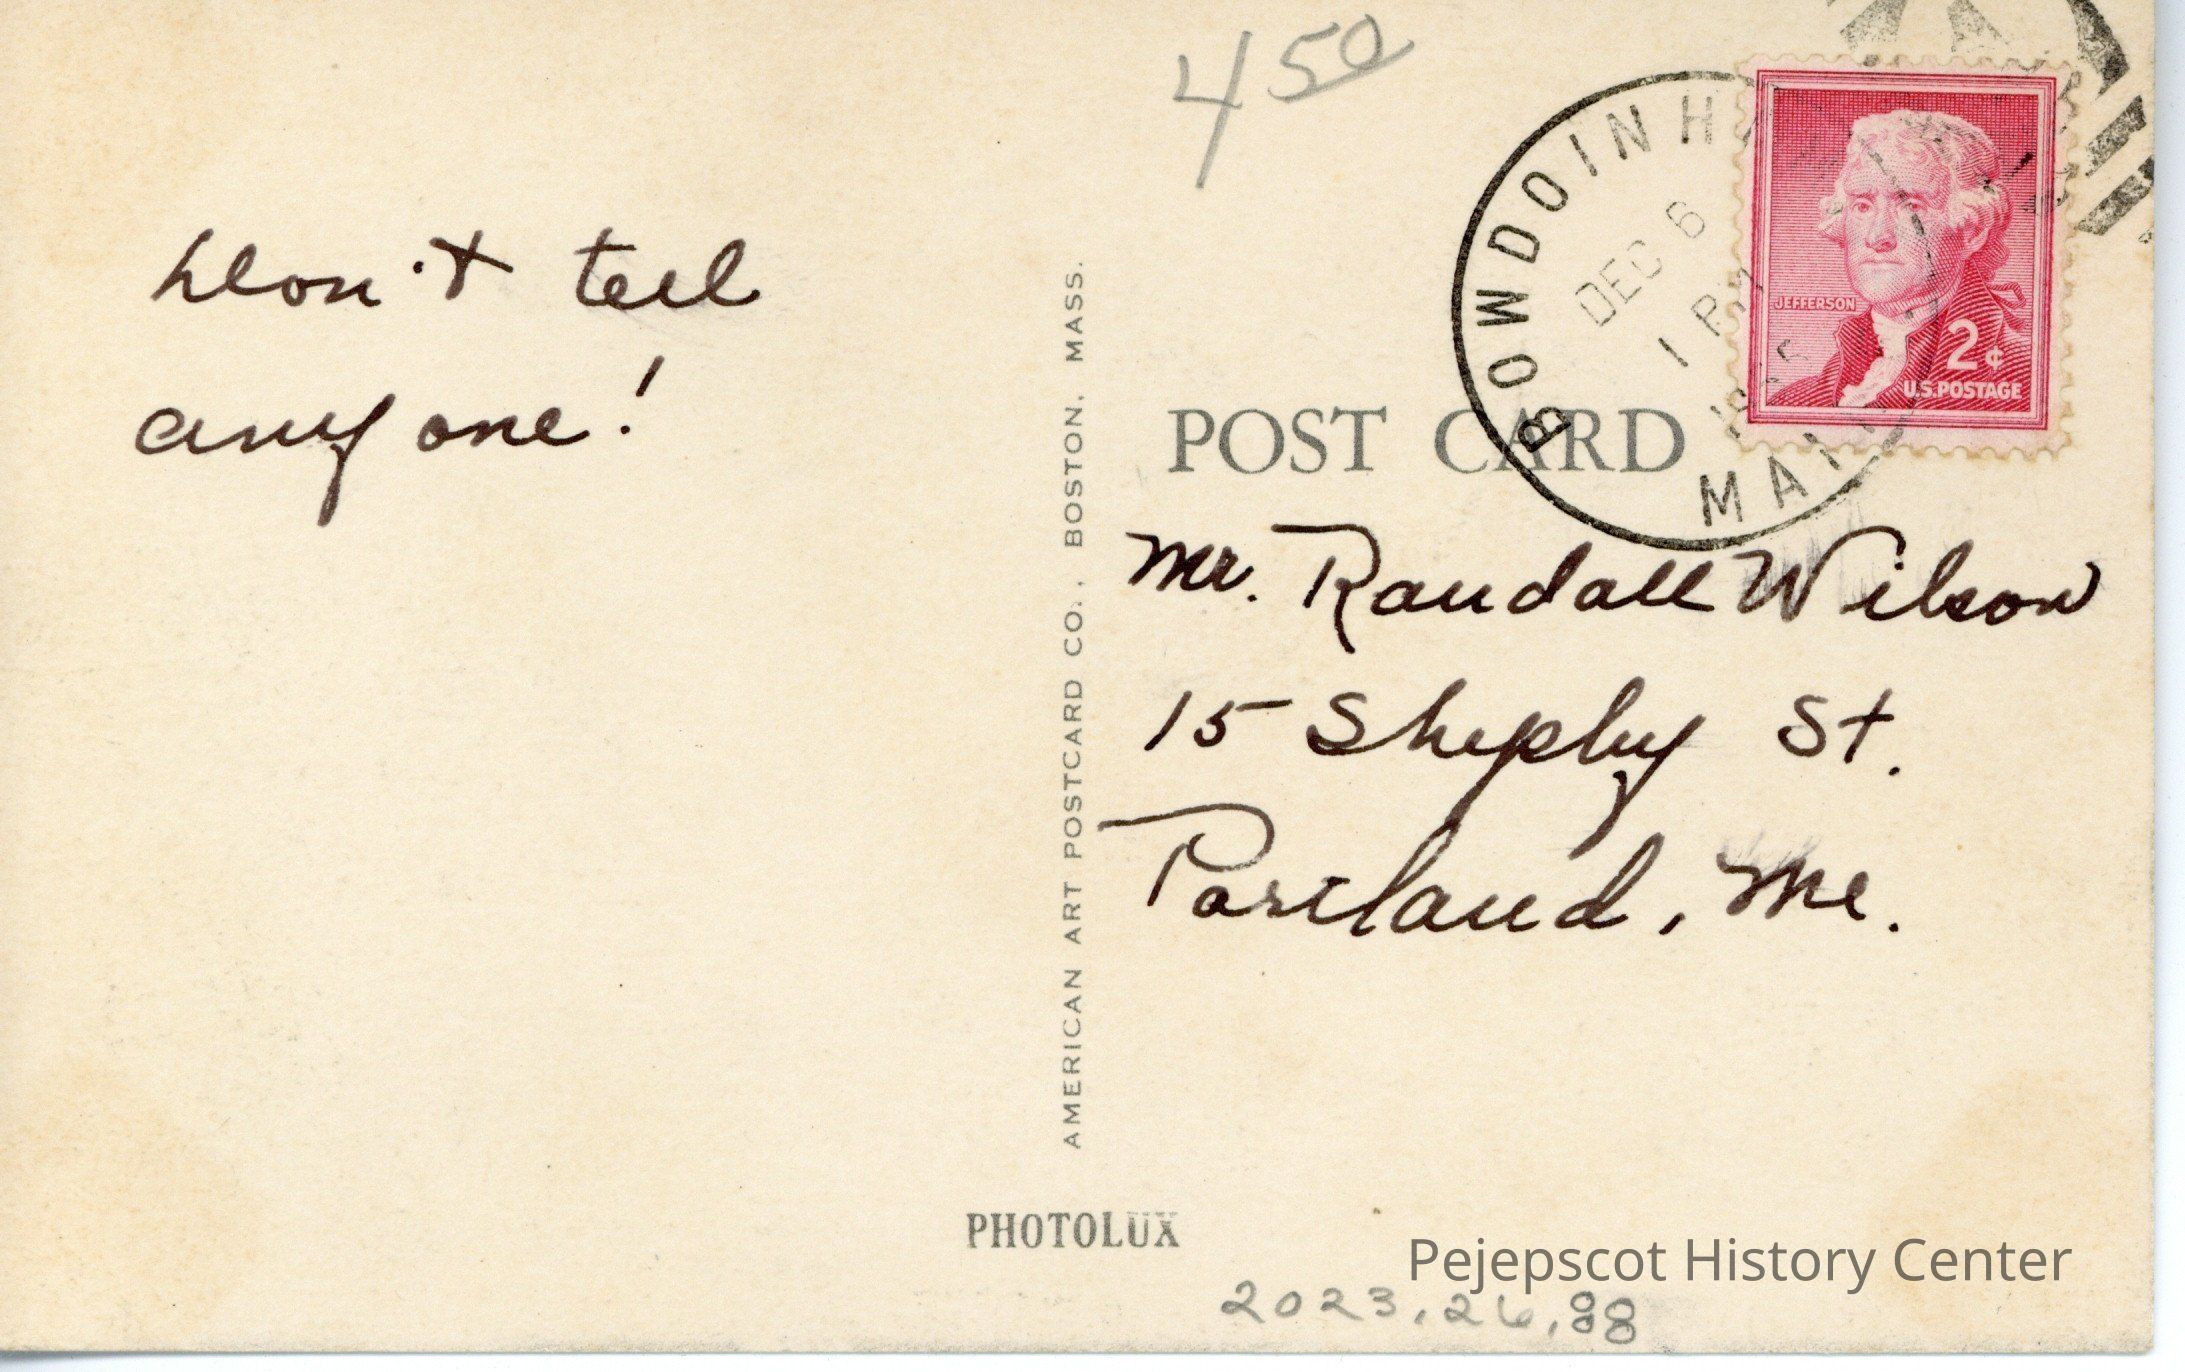 450
BOWDOINH
DEC 6
1 PM
MAI
JEFFERSON
2¢
U.S. POSTAGE
Don't tell
any one!
POST CARD
Mr. Randall Wilson
15 Shepley St.
Portland, Me.
AMERICAN ART POSTCARD CO., BOSTON, MASS.
PHOTOLUX
Pejepscot History Center
2023.26.88